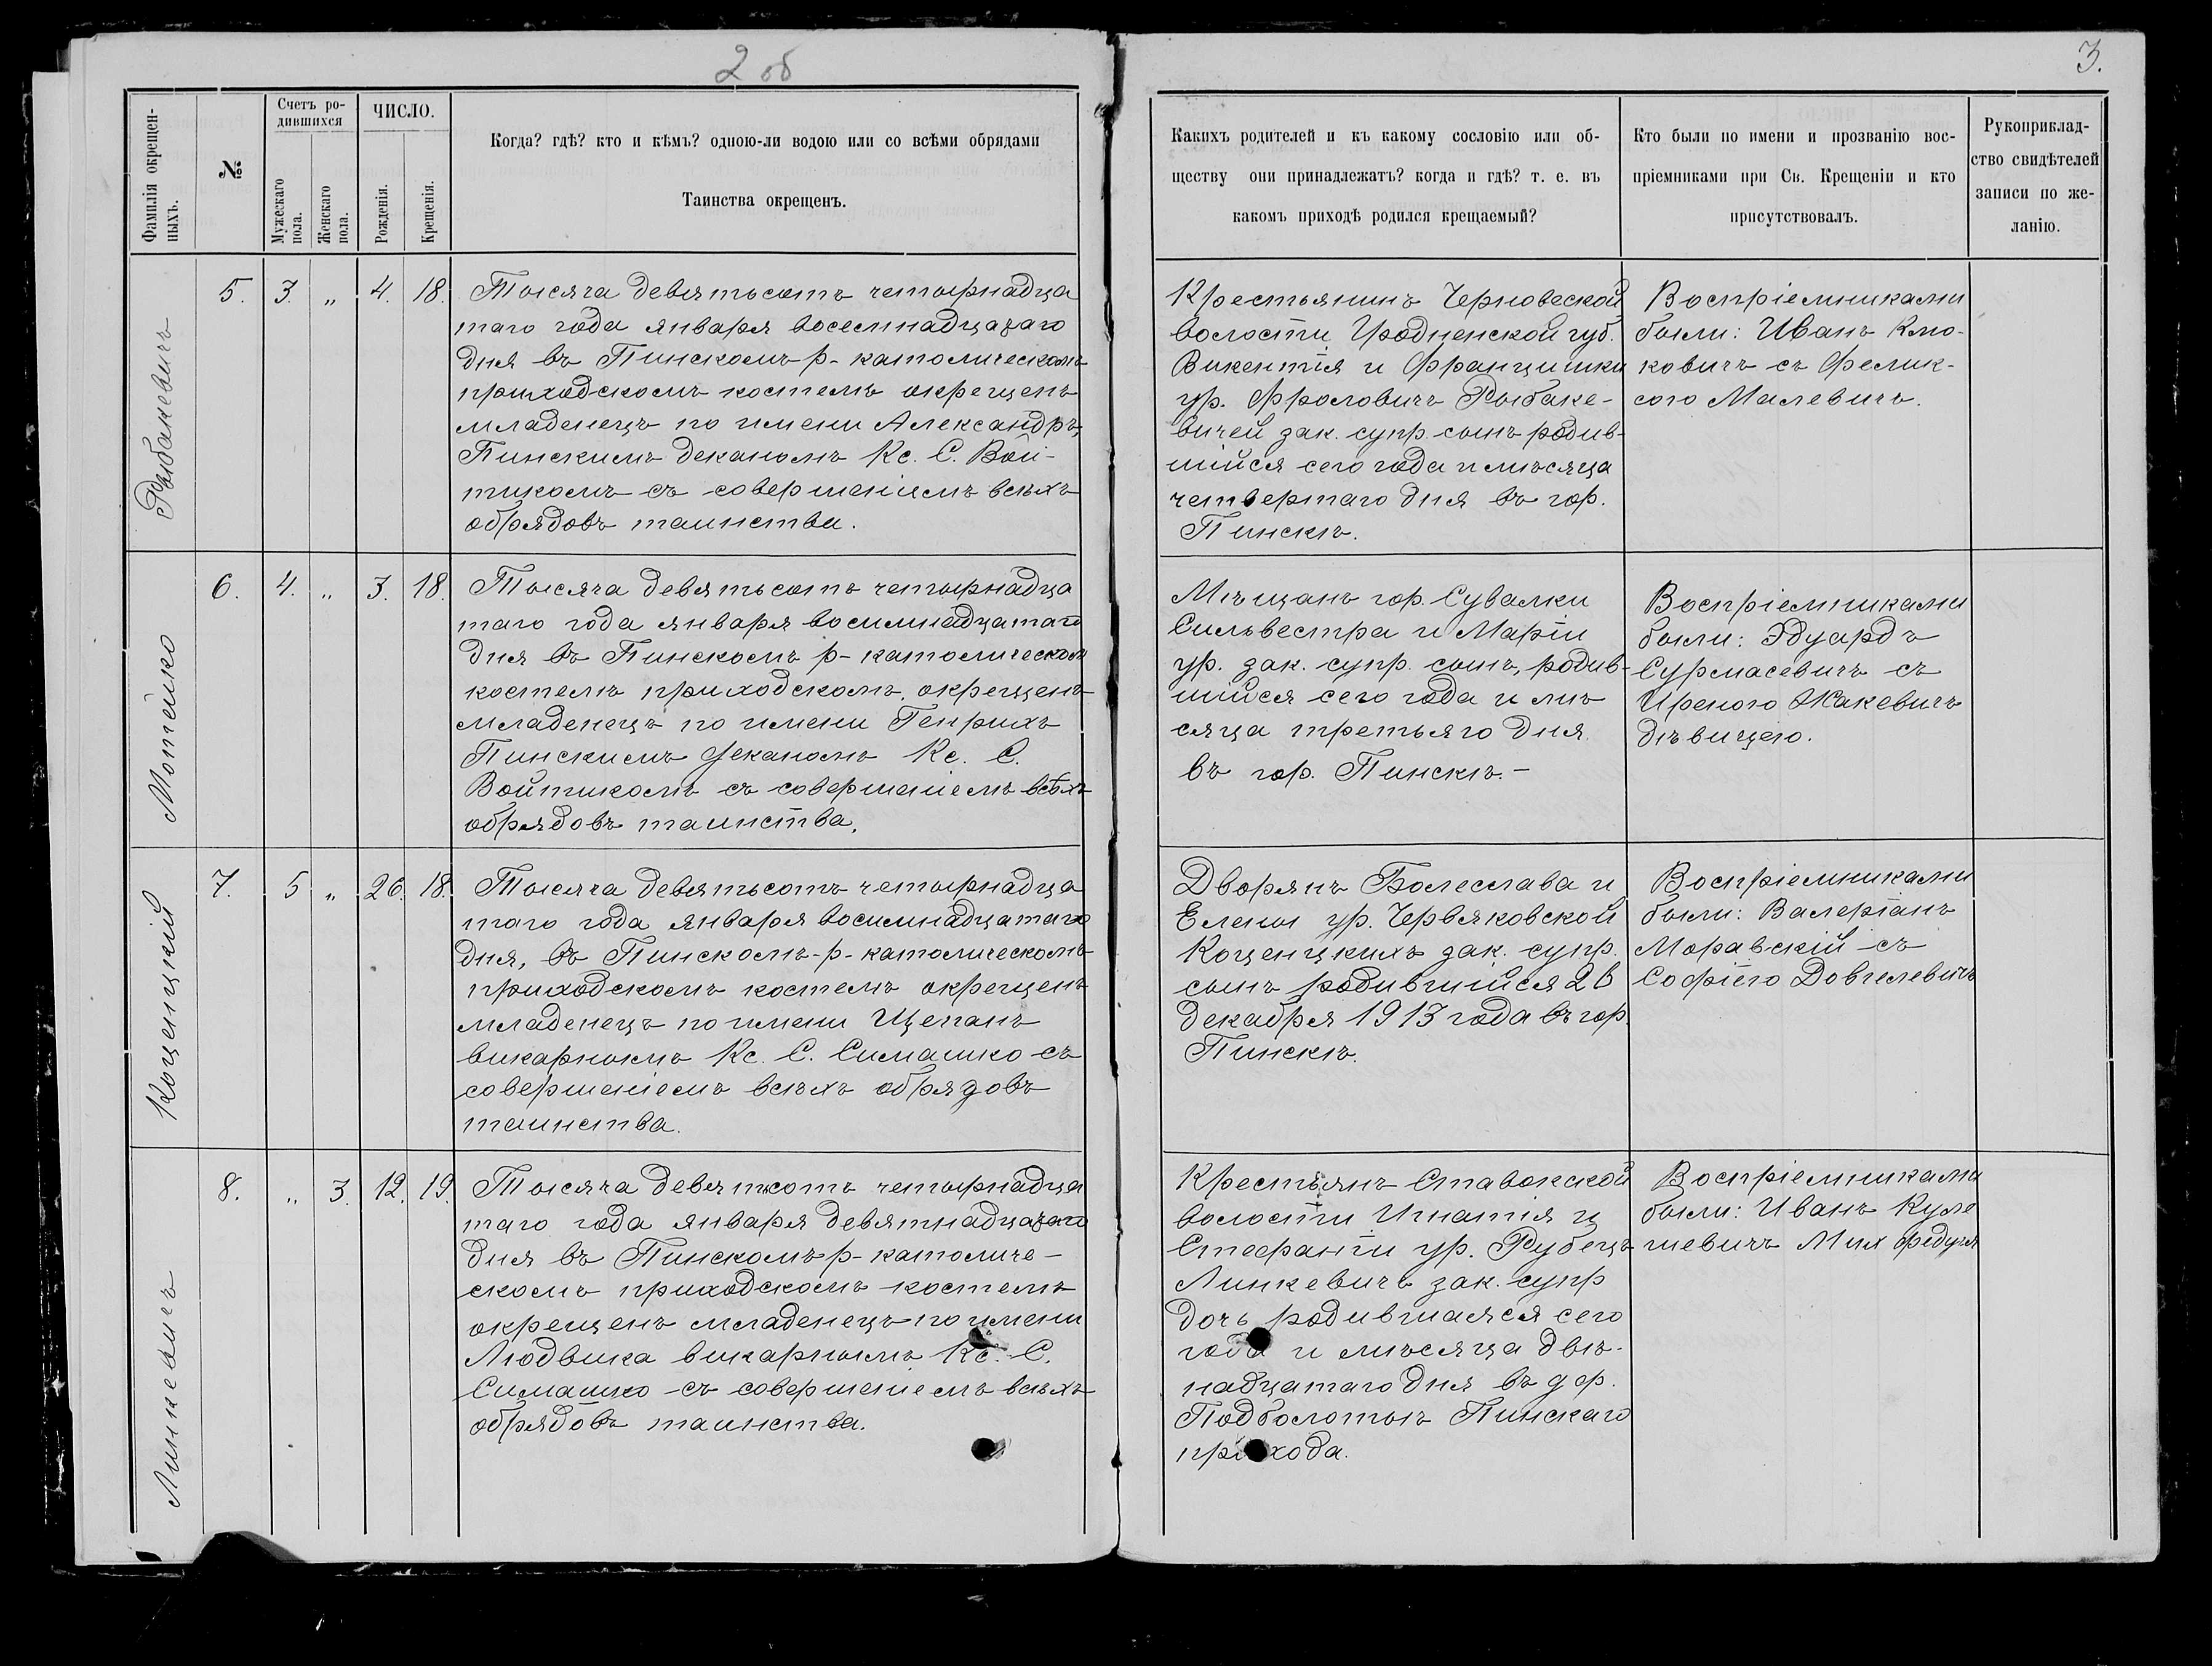 2 об
3.
Фамилія окрещен-
ныхъ.
№
Счетъ ро-
дившихся
Мужескаго
пола.
Женскаго
пола.
ЧИСЛО.
Рожденія.
Крещенія.
Когда? гдѣ? кто и кѣмъ? одною-ли водою или со всѣми обрядами
Таинства окрещенъ.
Какихъ родителей и къ какому сословію или об-
ществу они принадлежатъ? когда и гдѣ? т. е. въ
какомъ приходѣ родился крещаемый?
Кто были по имени и прозванію вос-
пріемниками при Св. Крещеніи и кто
присутствовалъ.
Рукоприклад-
ство свидѣтелей
записи по же-
ланію.
Рыбакевичъ
5. 3. „ 4. 18.
Тысяча девятьсотъ четырнадца
таго года января восемнадцатаго
дня въ Пинскомъ р-католическомъ
приходскомъ костелѣ окрещенъ
младенецъ по имени Александръ,
Пинскимъ деканомъ Кс. С. Вой-
тикомъ съ совершеніемъ всѣхъ
обрядовъ таинства.
Крестьянинъ Черновеской
волости Гродненской губ.
Викентія и Францишки
ур. Фроловичъ Рыбаке-
вичей зак. супр. сынъ родив-
шійся сего года и мѣсяца
четвертаго дня въ гор.
Пинскѣ.
Воспріемниками
были: Иванъ Клю-
ковичъ съ Фелик-
сою Малевичъ.
Мотейко
6. 4. „ 3. 18.
Тысяча девятьсотъ четырнадца
таго года января восимнадцатаго
дня въ Пинскомъ р-католическомъ
костелѣ приходскомъ окрещенъ
младенецъ по имени Генрихъ
Пинскимъ Деканомъ Кс. С.
Войтикомъ съ совершеніемъ всѣхъ
обрядовъ таинства.
Мѣщанъ гор. Сувалки
Сильвестра и Маріи
ур. зак. супр. сынъ, родив-
шійся сего года и мѣ
сяца третьяго дня
въ гор. Пинскѣ.-
Воспріемниками
были: Эдуардъ
Сурмасевичъ съ
Иреною Жакевичъ
дѣвицею.
Коценцкій
7. 5 „ 26. 18.
Тысяча девятьсотъ четырнадца
таго года января восимнадцатаго
дня, въ Пинскомъ-р-католическомъ
приходскомъ костелѣ окрещенъ
младенецъ по имени Щепанъ
викарнымъ Кс. С. Симашко съ
совершеніемъ всѣхъ обрядовъ
таинства.
Дворянъ Болеслава и
Елены ур. Червяковской
Коценцкихъ зак. супр.
сынъ родившійся 26
декабря 1913 года въ гор.
Пинскѣ.
Воспріемниками
были: Валеріанъ
Моравскій съ
Софіею Довгелевичъ
Линкевичъ
8. „ 3. 12. 19.
Тысяча девятьсотъ четырнадца
таго года января девятнадцатаго
дня въ Пинскомъ р-католиче-
скомъ приходскомъ костелѣ
окрещенъ младенецъ по имени
Людвика викарнымъ Кс. С.
Симашко съ совершеніемъ всѣхъ
обрядовъ таинства.
Крестьянъ Ставокской
волости Игнатія и
Стефаніи ур. Рубецъ
Линкевичъ зак. супр
дочь родившаяся сего
года и мѣсяца двѣ-
надцатаго дня въ дер.
Подболотьѣ Пинскаго
прихода.
Воспріемниками
были: Иванъ Куле
шевичъ